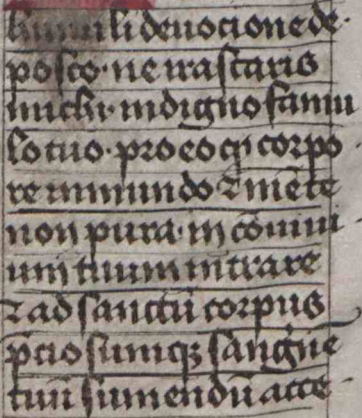 humili deuocione de·
posco· ne irascaris
michi· indigno famu
lo tuo· pro eo qͥ corpo
re inmundo ⁊ mēte
non pura· in cōuiui
um tuum intrare
⁊ ad sanctū corpus
p̄cio sumiqꝫ sanguinē
tuū sumendū acce